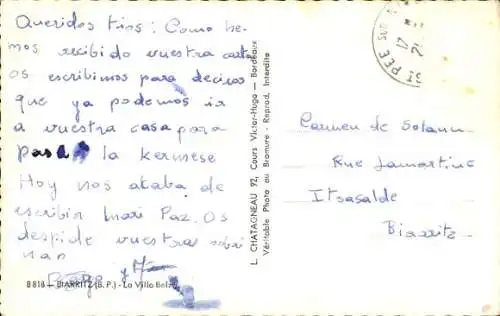 Queridos tios: Como he-
mos recibido vuestra carta
os escribimos para deciros
que ya podemos ir
a vuestra casa para
la kermese
Hoy nos acaba de
escribir Mari Paz. Os
despide vuestra sobri
nan
8818 — BIARRITZ (B. P.) - La Villa Belza
L. CHATAGNEAU 92, Cours Victor-Hugo — Bordeaux
Véritable Photo au Bromure - Reprod. Interdite
ST PEE SUR
17
Carmen de Solaun
Rue Lamartine
Itsasalde
Biarritz